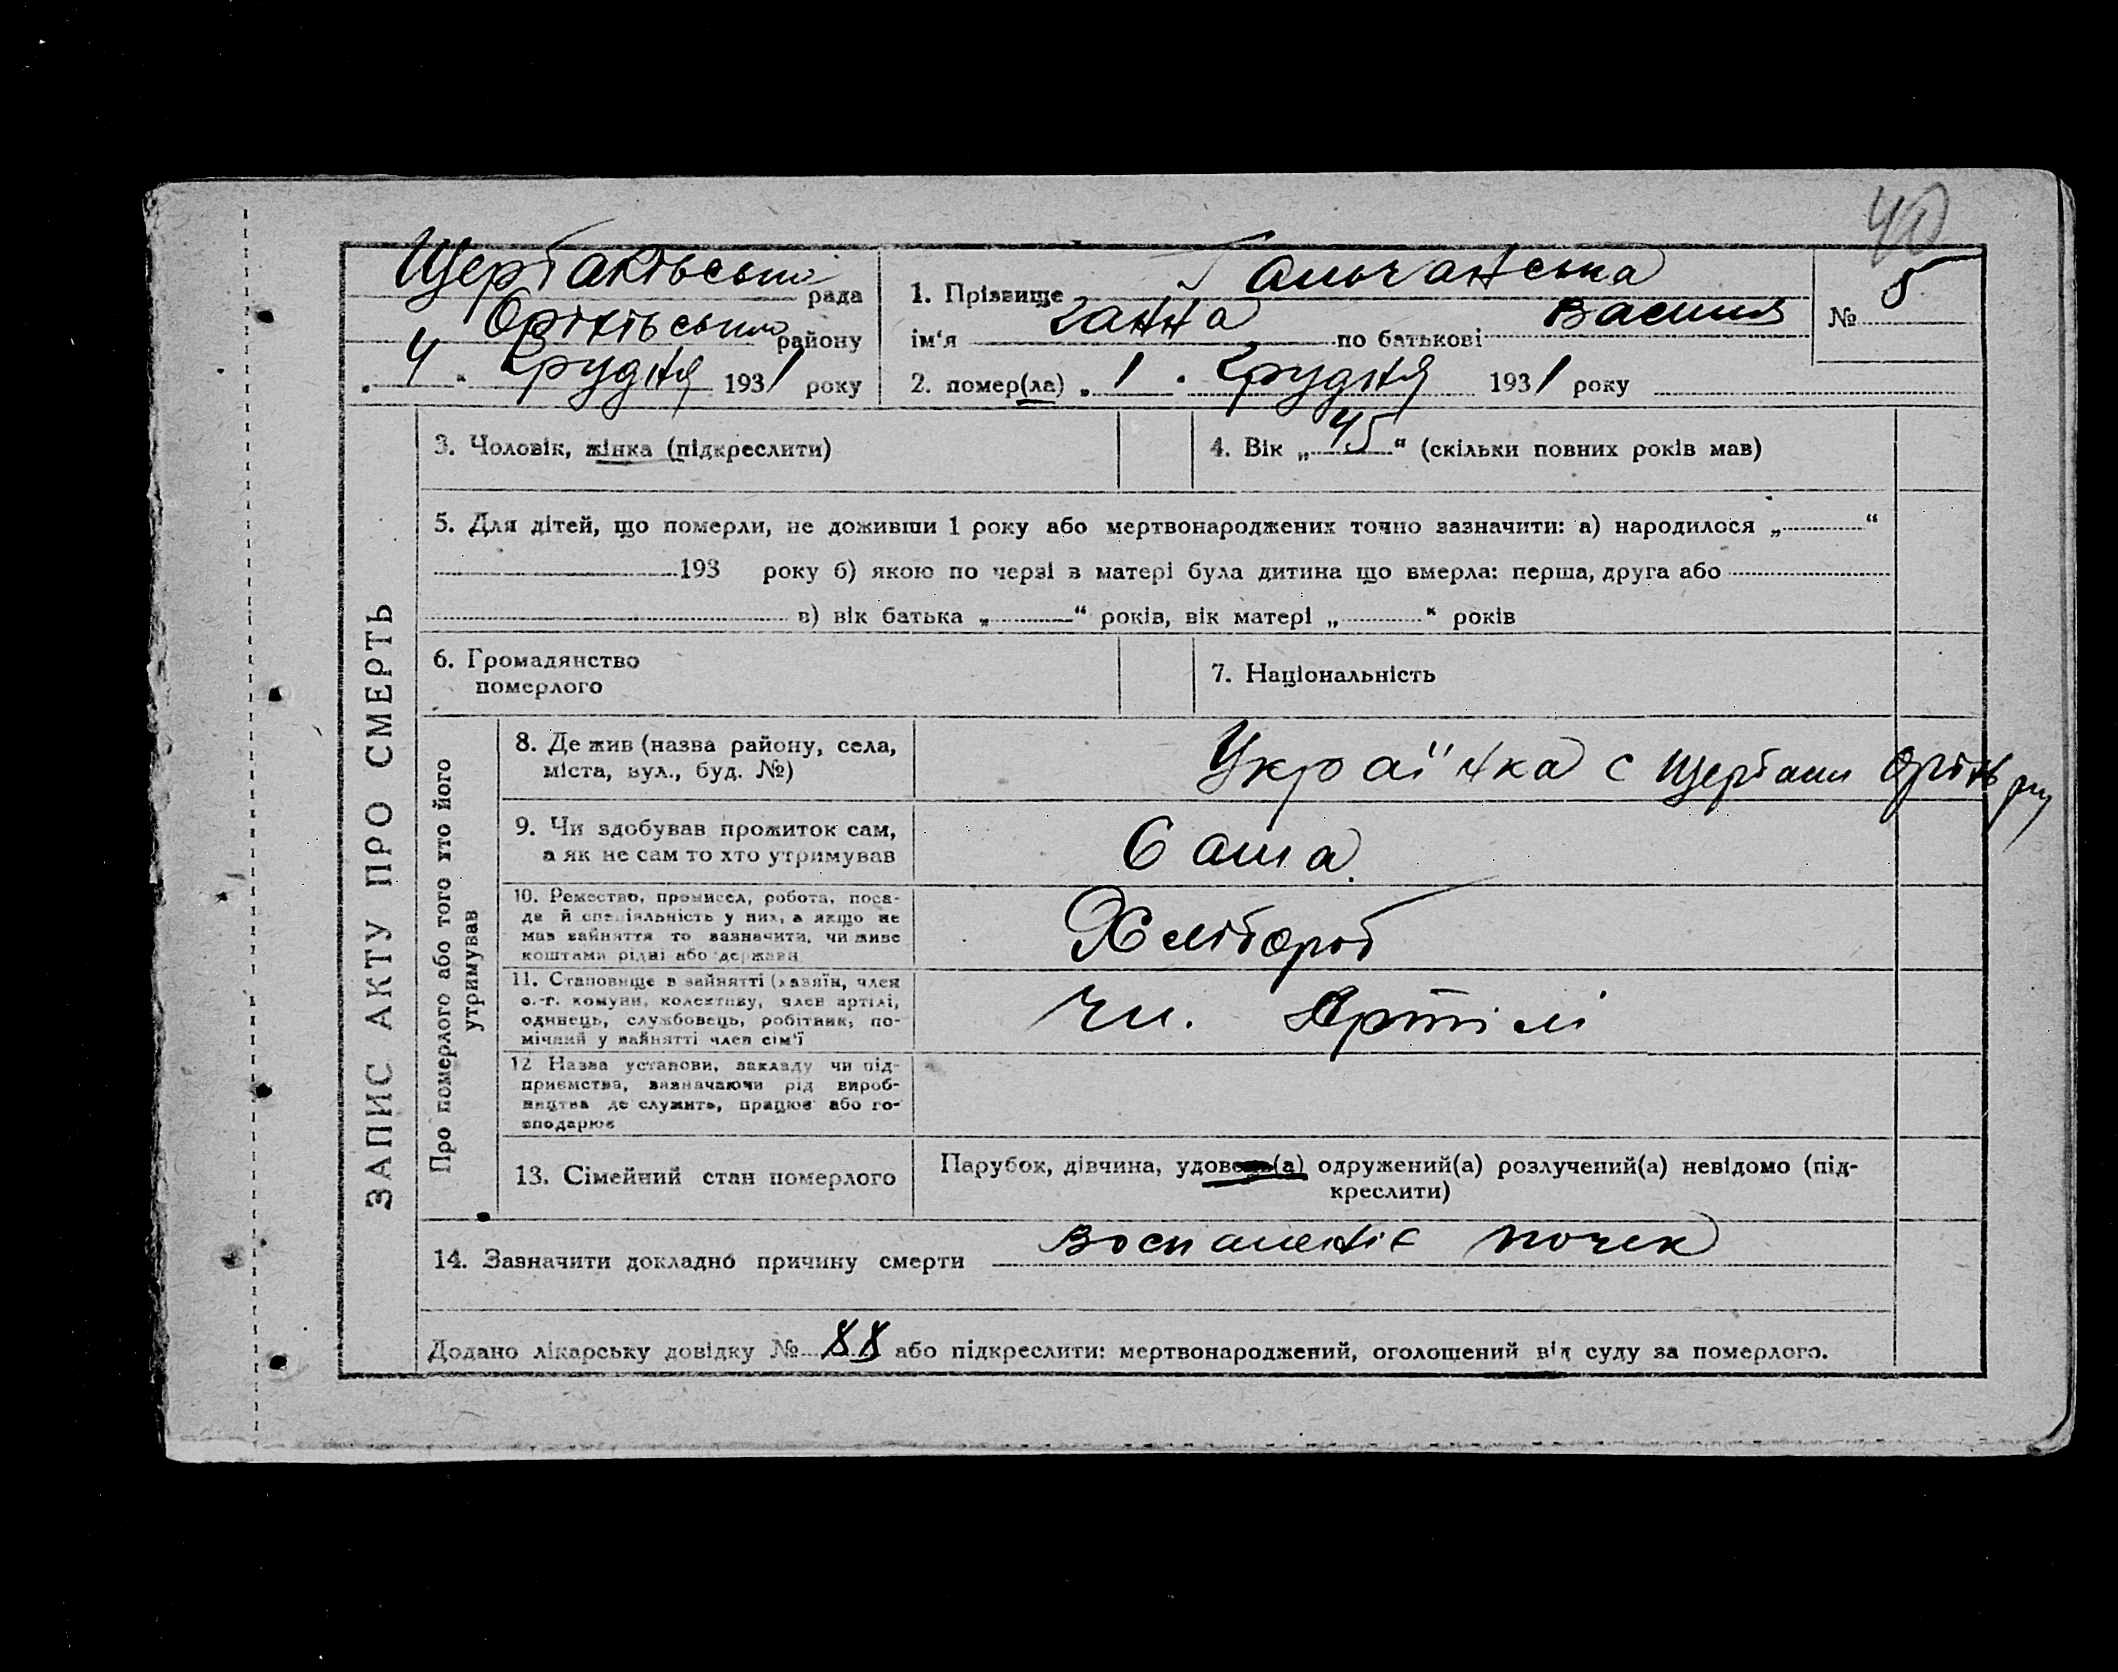 40
Щербаківської рада
Оріхівського району
„ 4 " Грудня 1931 року
1. Прізвище Гальчанська
ім'я Ганна по батькові Васил
№ 5
2. помер(ла) „ 1 " Грудня 1931 року
ЗАПИС АКТУ ПРО СМЕРТЬ
3. Чоловік, жінка (підкреслити)
4. Вік „ 45 " (скільки повних років мав)
5. Для дітей, що померли, не доживши 1 року або мертвонароджених точно зазначити: а) народилося „ "
193 року б) якою по черзі в матері була дитина що вмерла: перша, друга або
в) вік батька „ " років, вік матері „ " років
6. Громадянство
померлого
7. Національність
Про померлого або того хто його
утримував
8. Де жив (назва району, села,
міста, вул., буд. №)
Українка с Щербаки Оріхів р-ну
9. Чи здобував прожиток сам,
а як не сам то хто утримував
Сама
10. Ремество, промисел, робота, поса-
да й спеціяльність у них, а якщо не
мав зайняття то зазначити, чи живе
коштами рідні або держави
Хлібороб
11. Становище в зайнятті (хазяїн, член
с.-г. комуни, колективу, член артілі,
одинець, службовець, робітник, по-
мічний у зайнятті член сім'ї
Чл. Артілі
12 Назва установи, закладу чи під-
приємства, зазначаючи рід вироб-
ництва де служить, працює або го-
сподарює
13. Сімейний стан померлого
Парубок, дівчина, удовець(а) одружений(а) розлучений(а) невідомо (під-
креслити)
14. Зазначити докладно причину смерти Воспаленіє почек
Додано лікарську довідку № або підкреслити: мертвонароджений, оголошений від суду за померлого.